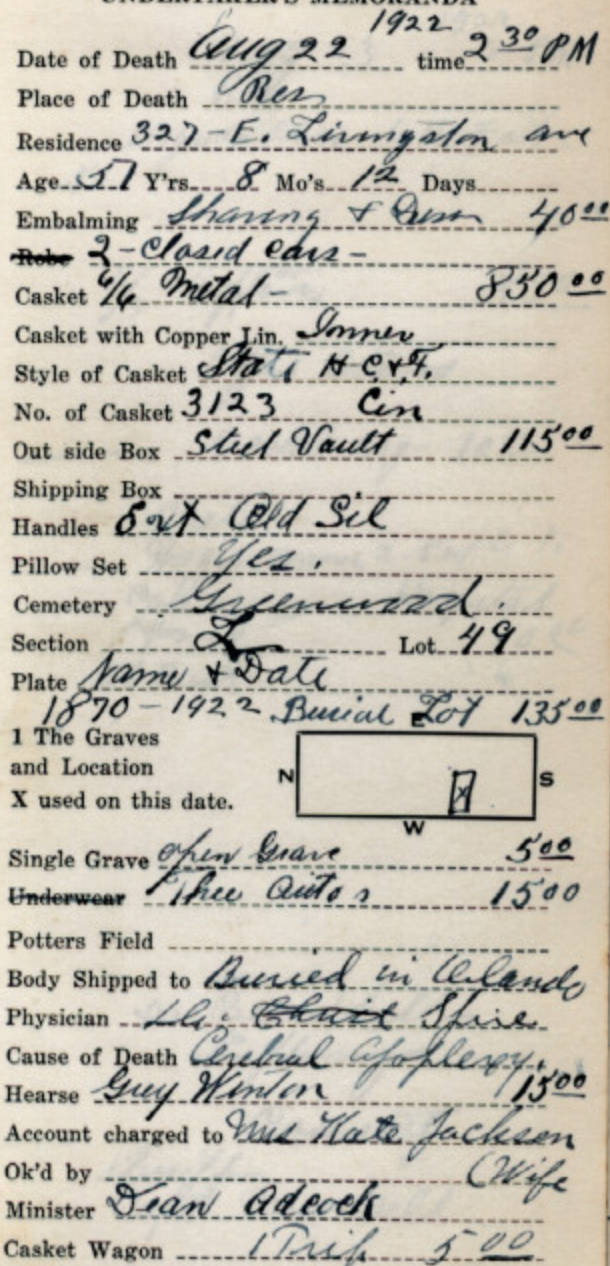 UNDERTAKER'S MEMORANDA
1922
Date of Death Aug 22 time 2 30 PM
Place of Death Res
Residence 327 - E. Livingston ave
Age 51 Y'rs 8 Mo's 12 Days
Embalming Shaving & Dress 40 00
Robe 2 - Closed cars -
Casket 6/6 Metal - 850 00
Casket with Copper Lin. Inner
Style of Casket State H C & F.
No. of Casket 3123 Cin
Out side Box Steel Vault 115 00
Shipping Box
Handles Ext Old Sil
Pillow Set Yes.
Cemetery Greenwood.
Section L Lot 49
Plate Name & Date
1870 - 1922 Burial Lot 135 00
1 The Graves
and Location
X used on this date.
E
N X S
W
Single Grave open Grave 5 00
Underwear Three Autos 15 00
Potters Field
Body Shipped to Buried in Orlando
Physician Spire
Cause of Death Cerebral Apoplexy.
Hearse Grey Winton 15 00
Account charged to Mrs Kate Jackson
Ok'd by (Wife
Minister Dean Adcock
Casket Wagon 1 Trip 5 00